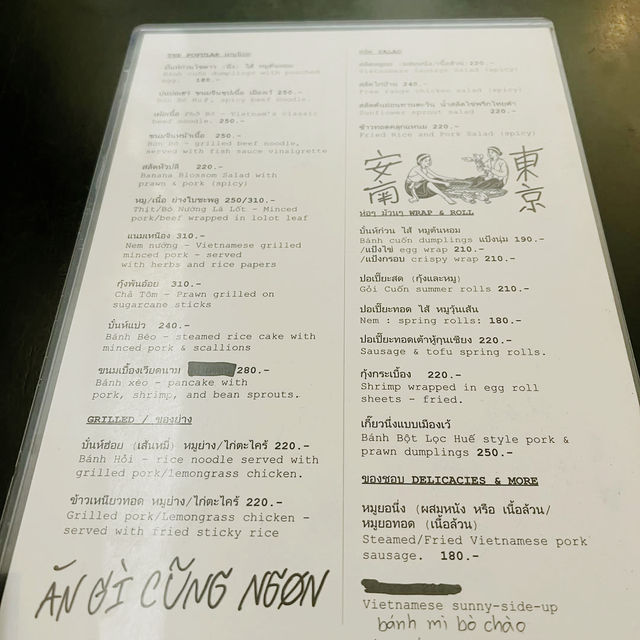 THE POPULAR
Bánh cuốn dumplings with poached
egg. 180.-
250.-
Bún Bò Huế, spicy beef noodle.
Phở Bò - Vietnam's classic
beef noodle. 250.-
ขนมจีนหน้าเนื้อ 250.-
Bún Bò - grilled beef noodle,
served with fish sauce vinaigrette
สลัดหัวปลี 220.-
Banana Blossom Salad with
prawn & pork (spicy)
หมู/เนื้อ ย่างใบชะพลู 250/310.-
Thịt/Bò Nướng Lá Lốt - Minced
pork/beef wrapped in lolot leaf
แนมเหนือง 310.-
Nem nướng - Vietnamese grilled
minced pork - served
with herbs and rice papers
กุ้งพันอ้อย 310.-
Chả Tôm - Prawn grilled on
sugarcane sticks
บั่นห์แบ่ว 240.-
Bánh Bèo - steamed rice cake with
minced pork & scallions
ขนมเบื้องเวียดนาม 280.-
Bánh xèo - pancake with
pork, shrimp, and bean sprouts.
GRILLED / ของย่าง
บั่นห์ฮ่อย (เส้นหมี่) หมูย่าง/ไก่ตะไคร้ 220.-
Bánh Hỏi - rice noodle served with
grilled pork/lemongrass chicken.
ข้าวเหนียวทอด หมูย่าง/ไก่ตะไคร้ 220.-
Grilled pork/Lemongrass chicken -
served with fried sticky rice
ĂN GÌ CŨNG NGON
SALAD
220.-
Vietnamese Sausage Salad (spicy)
สลัดไก่บ้าน 240.-
Free range chicken salad (spicy)
สลัดต้นอ่อนทานตะวัน น้ำสลัดใช้พริกไทยดำ
Sunflower sprout salad 220.-
ข้าวทอดคลุกแหนม 220.-
Fried Rice and Pork Salad (spicy)
安南
東京
ห่อๆ ม้วนๆ WRAP & ROLL
บั่นห์ก่วน ไส้ หมูต้นหอม
Bánh cuốn dumplings แป้งนุ่ม 190.-
/แป้งไข่ egg wrap 210.-
/แป้งกรอบ crispy wrap 210.-
ปอเปี๊ยะสด (กุ้งและหมู)
Gỏi Cuốn summer rolls 210.-
ปอเปี๊ยะทอด ไส้ หมูวุ้นเส้น
Nem : spring rolls: 180.-
ปอเปี๊ยะทอดเต้าหู้กุนเชียง 220.-
Sausage & tofu spring rolls.
กุ้งกระเบื้อง 220.-
Shrimp wrapped in egg roll
sheets - fried.
เกี๊ยวนึ่งแบบเมืองเว้
Bánh Bột Lọc Huế style pork &
prawn dumplings 250.-
ของชอบ DELICACIES & MORE
หมูยอนึ่ง (ผสมหนัง หรือ เนื้อล้วน/
หมูยอทอด (เนื้อล้วน)
Steamed/Fried Vietnamese pork
sausage. 180.-
Vietnamese sunny-side-up
bánh mì bò chảo